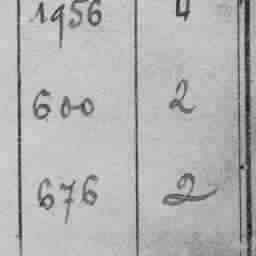 1956 4
600 2
676 2